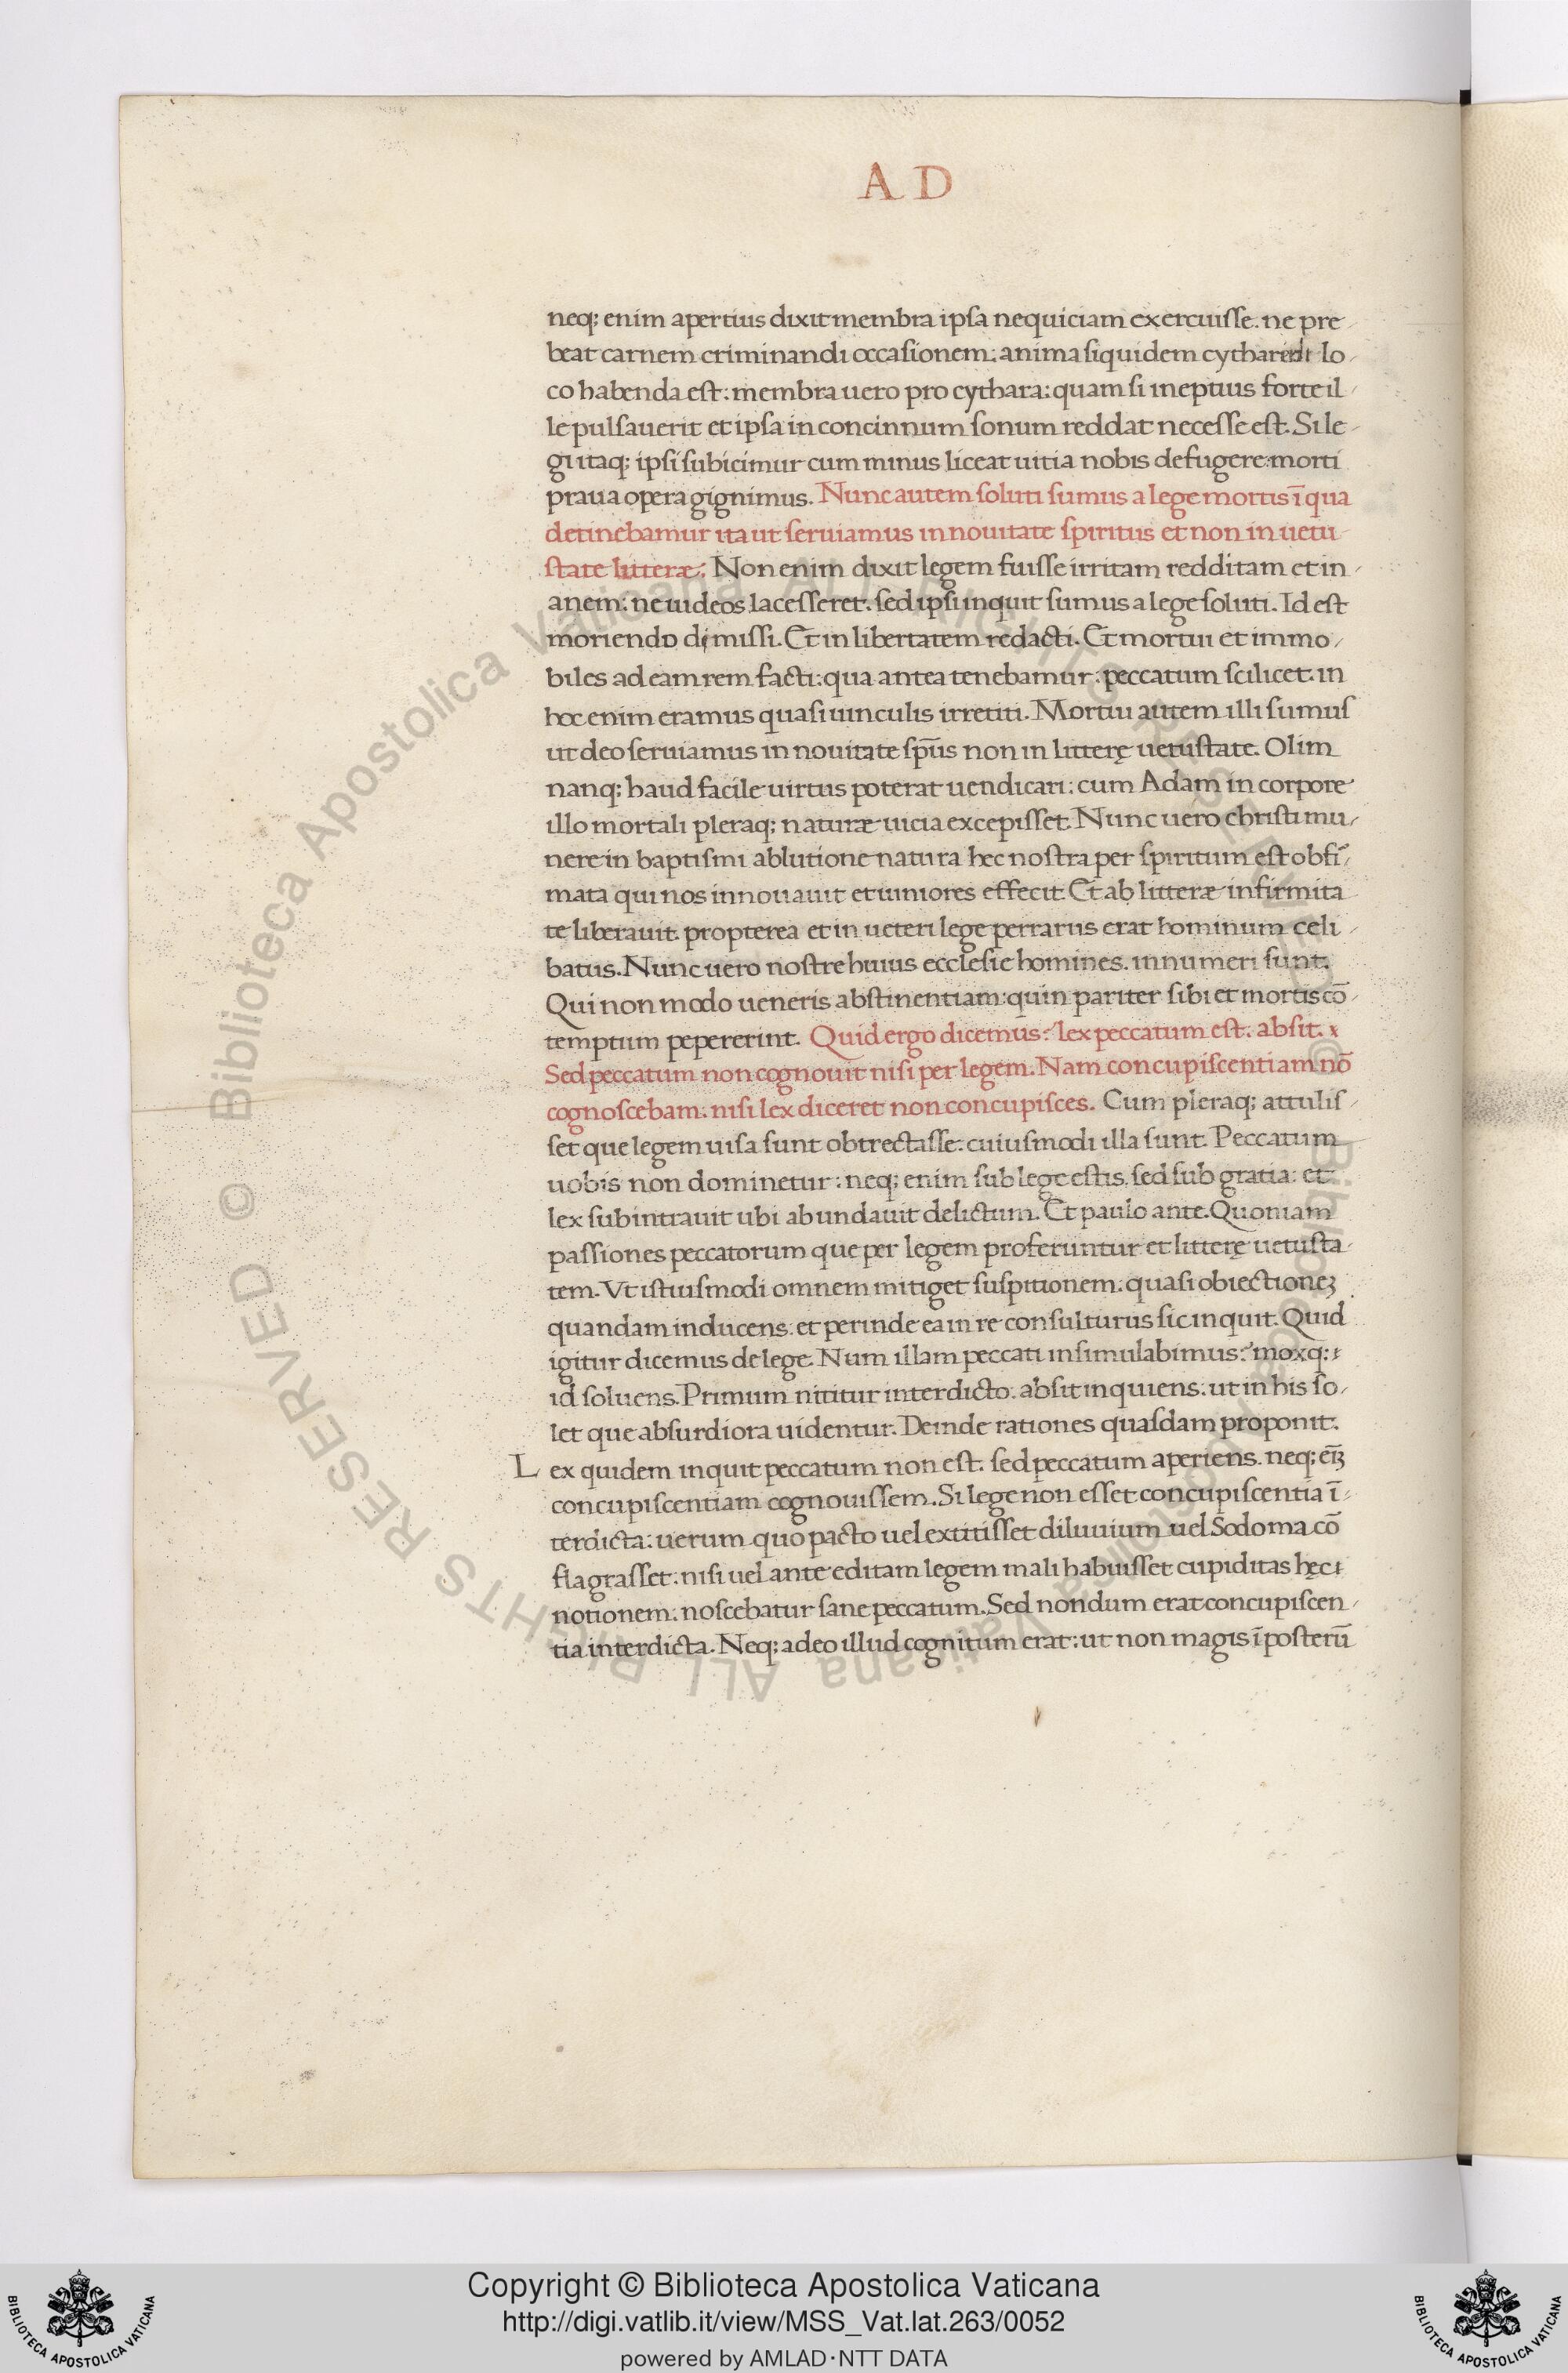 A D
neq; enim apertius dixit membra ipsa nequiciam exercuisse. ne pre
beat carnem criminandi occasionem: anima siquidem cytharedi lo
co habenda est: membra uero pro cythara: quam si ineptius forte il
le pulsauerit et ipsa in concinnum sonum reddat necesse est. Si le
gi itaq; ipsi subicimur cum minus liceat uitia nobis defugere: morti
praua opera gignimus. Nunc autem soluti sumus a lege mortis ī qua
detinebamur ita ut seruiamus in nouitate spiritus et non in uetu
state litteræ. Non enim dixit legem fuisse irritam redditam et in
anem: ne iudeos lacesseret. sed ipsi inquit sumus a lege soluti. Id est
moriendo dimissi. Et in libertatem redacti. Et mortui et immo
biles ad eam rem facti: qua antea tenebamur: peccatum scilicet. in
hoc enim eramus quasi uinculis irretiti. Mortui autem illi sumus
ut deo seruiamus in nouitate sp̄us non in litterę uetustate. Olim
nanq; haud facile uirtus poterat uendicari: cum Adam in corpore
illo mortali pleraq; naturæ uicia excepisset. Nunc uero christi mu
nere in baptismi ablutione natura hec nostra per spiritum est obfi̅
mata qui nos innouauit et iuniores effecit. Et ab litteræ infirmita
te liberauit. propterea et in ueteri lege perrarus erat hominum celi
batus. Nunc uero nostre huius ecclesie homines. innumeri sunt.
Qui non modo ueneris abstinentiam: quin pariter sibi et mortis cō
temptum pepererint. Quid ergo dicemus? lex peccatum est. absit.
Sed peccatum non cognouit nisi per legem. Nam concupiscentiam nō
cognoscebam: nisi lex diceret non concupisces. Cum pleraq; attulis
set que legem uisa sunt obtrectasse. cuiusmodi illa sunt. Peccatum
uobis non dominetur: neq; enim sub lege estis. sed sub gratia: et
lex subintrauit ubi abundauit delictum. Et paulo ante. Quoniam
passiones peccatorum que per legem proferuntur et litterę uetusta
tem. Vt istiusmodi omnem mitiget suspitionem: quasi obiectioneꝫ
quandam inducens. et perinde ea in re consulturus sic inquit. Quid
igitur dicemus de lege. Num illam peccati insimulabimus? moxq:
id soluens. Primum nititur interdicto. absit inquiens: ut in his so
let que absurdiora uidentur. Deinde rationes quasdam proponit.
Lex quidem inquit peccatum non est. sed peccatum aperiens. neq; eīꝫ
concupiscentiam cognouissem. Si lege non esset concupiscentia ī
terdicta: uerum quo pacto uel extitisset diluuium uel Sodoma cō
flagrasset: nisi uel ante editam legem mali habuisset cupiditas hęc
notionem: noscebatur sane peccatum. Sed nondum erat concupiscen
tia interdicta. Neq; adeo illud cognitum erat: ut non magis ī posterū
© Biblioteca Apostolica Vaticana ALL RIGHTS RESERVED © Biblioteca Apostolica Vaticana ALL RIGHTS RESERVED
Copyright © Biblioteca Apostolica Vaticana
http://digi.vatlib.it/view/MSS_Vat.lat.263/0052
powered by AMLAD·NTT DATA
BIBLIOTECA APOSTOLICA VATICANA
BIBLIOTECA APOSTOLICA VATICANA